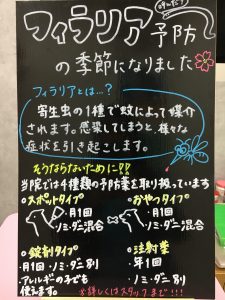 フィラリア予防
の季節になりました
フィラリアとは…?
寄生虫の1種で蚊によって媒介
されます。感染してしまうと、様々な
症状を引き起こします。
そうならないために!!
当院では4種類の予防薬を取り扱っています
○スポットタイプ
・月1回
・ノミ・ダニ混合
○おやつタイプ
・月1回
・ノミ・ダニ混合
○錠剤タイプ
・月1回 ・ノミ・ダニ別
アレルギーの子でも
使えます。
○注射薬
・年1回
・ノミ・ダニ別
※詳しくはスタッフまで!!!